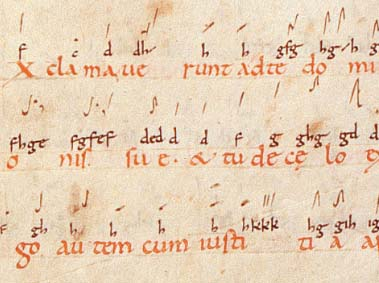 f c d dh h h gfg hg h g
X cla ma ve runt ad te do mi
fhge fgfef ded d d f g ghg gd d
o nis. su e. & tu de cę lo e
f gh h h h h hkkk hg gih ig
go au tem cum iusti ti a a